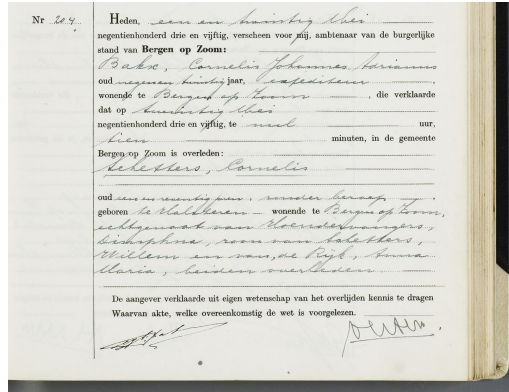 Nr 204. Heden, een en twintig Mei
negentienhonderd drie en vijftig, verscheen voor mij, ambtenaar van de burgerlijke
stand van Bergen op Zoom:
Bakx, Cornelis Johannes Adrianus
oud negenen twintig jaar, expediteur,
wonende te Bergen op Zoom, die verklaarde
dat op twintig Mei
negentienhonderd drie en vijftig, te nul uur,
tien minuten, in de gemeente
Bergen op Zoom is overleden:
Schetters, Cornelis
oud een en zeventig jaren, zonder beroep,
geboren te Halsteren wonende te Bergen op Zoom,
echtgenoot van Hoendervangers,
Dimphna, zoon van Schetters,
Willem en van de Rijk, Anna
Maria, beiden overleden
De aangever verklaarde uit eigen wetenschap van het overlijden kennis te dragen
Waarvan akte, welke overeenkomstig de wet is voorgelezen.